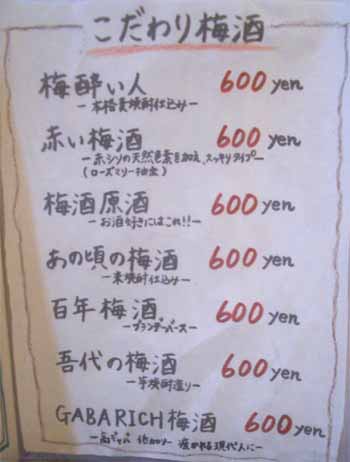 こだわり梅酒
梅酔い人 600 yen
ー本格麦焼酎仕込みー
赤い梅酒 600 yen
ー赤シソの天然色素を加え、スッキリタイプー
(ローズマリー抽出)
梅酒原酒 600 yen
ーお酒好きにはこれ!!ー
あの頃の梅酒 600 yen
ー米焼酎仕込みー
百年梅酒 600 yen
ーブランデーベースー
吾代の梅酒 600 yen
ー芋焼酎造りー
GABARICH梅酒 600 yen
ー高ギャバ 低カロリー 疲れる現代人にー